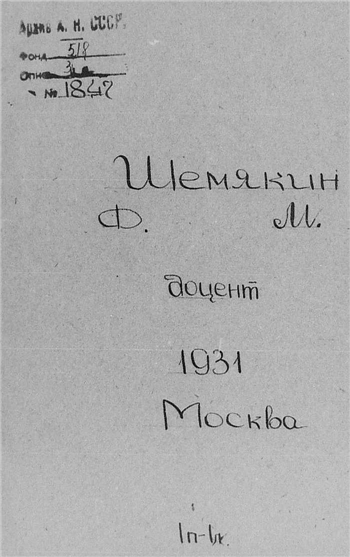 Архив А. Н. СССР.
Фонд 518
Опись
№ 1847
Шемякин
Ф. М.
доцент
1931
Москва